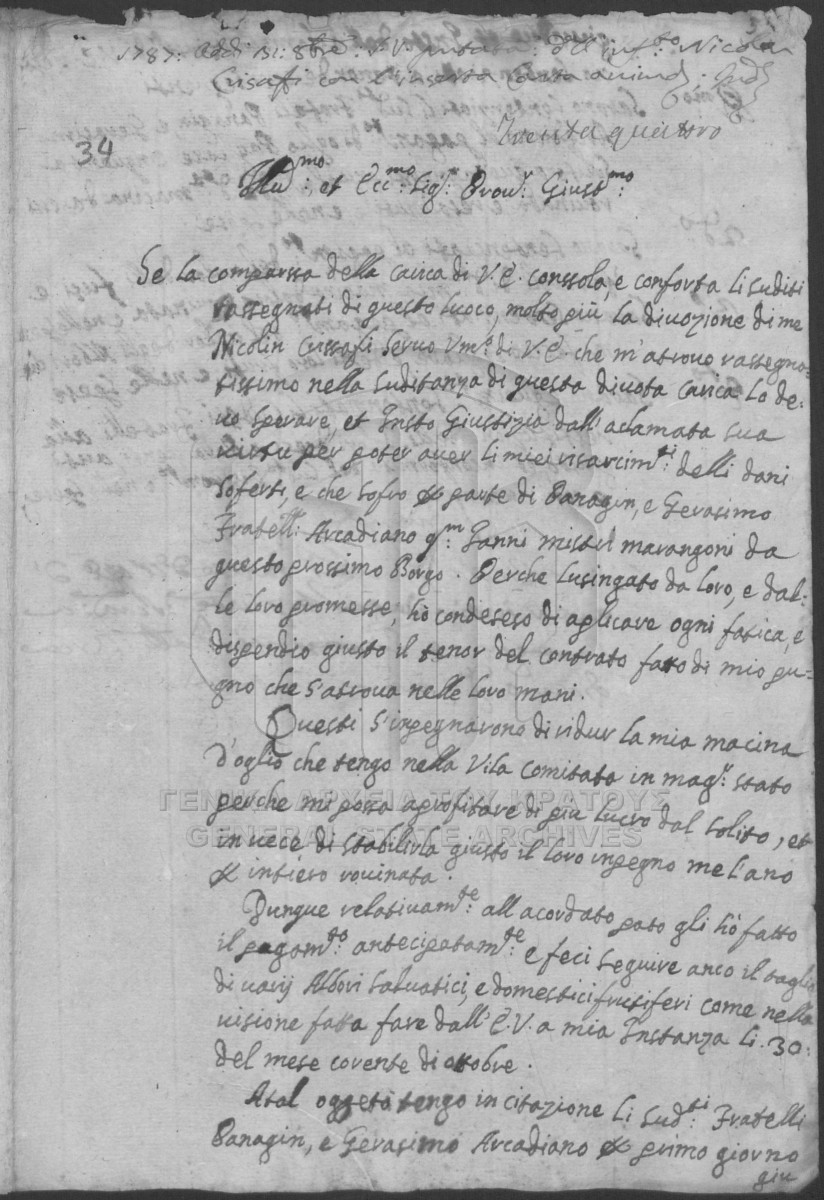 1787: Adì 31: 8bre: V. Pntata: dal infto Nicolin
Crisaffi con l'inserta Carta
34
Trenta quattro
Illmo:, et Eccmo: Sigr. Prour. Giustmo:
Se la comparssa della Carica di V.E. conssola, e conforta li suditi
rassegnati di questo luoco, molto più la diuozione di me
Nicolin Crissaffi seruo Vmo: di V.E. che m'atrouo rassegna=
tissimo nella suditanza di questa diuota Carica Lo de=
uo sperare, et Insto Giustizia dall'aclamata sua
uirtu per poter auer li miei risarcimti: delli dani
soferti, e che sofro p parte di Panagin, e Gerasimo
Fratelli Arcadiano qm: Janni mistri marangoni da
questo prossimo Borgo. Perche lusingato da loro, e dal=
le loro promesse, hò condeseso di aplicare ogni fatica, e
dispendio giusto il tenor del contrato fatto di mio pu=
gno che s'atroua nelle loro mani.
Questi s'inpegnarono di ridur la mia macina
d'oglio che tengo nella Vila Comitata in magr: stato
perche mi possa aprofitare di piu lucro dal solito, et
in uece di stabilirla giusto il loro inpegno me l'ano
p intiero rouinata.
Dunque relatiuamte: all'acordato pato gli hò fatto
il pagamto: antecipatamte: e feci seguire anco il taglio
di uarij Albori saluatici, e domestici frutiferi come nella
uisione fatta fare dall'E.V. a mia Instanza li. 30:
del mese corente di ottobre.
A tal oggeto tengo in citazione li sudti: Fratelli
Panagin, e Gerasimo Arcadiano p primo giorno
giu
ΓΕΝΙΚΑ ΑΡΧΕΙΑ ΤΟΥ ΚΡΑΤΟΥΣ
GENERAL STATE ARCHIVES